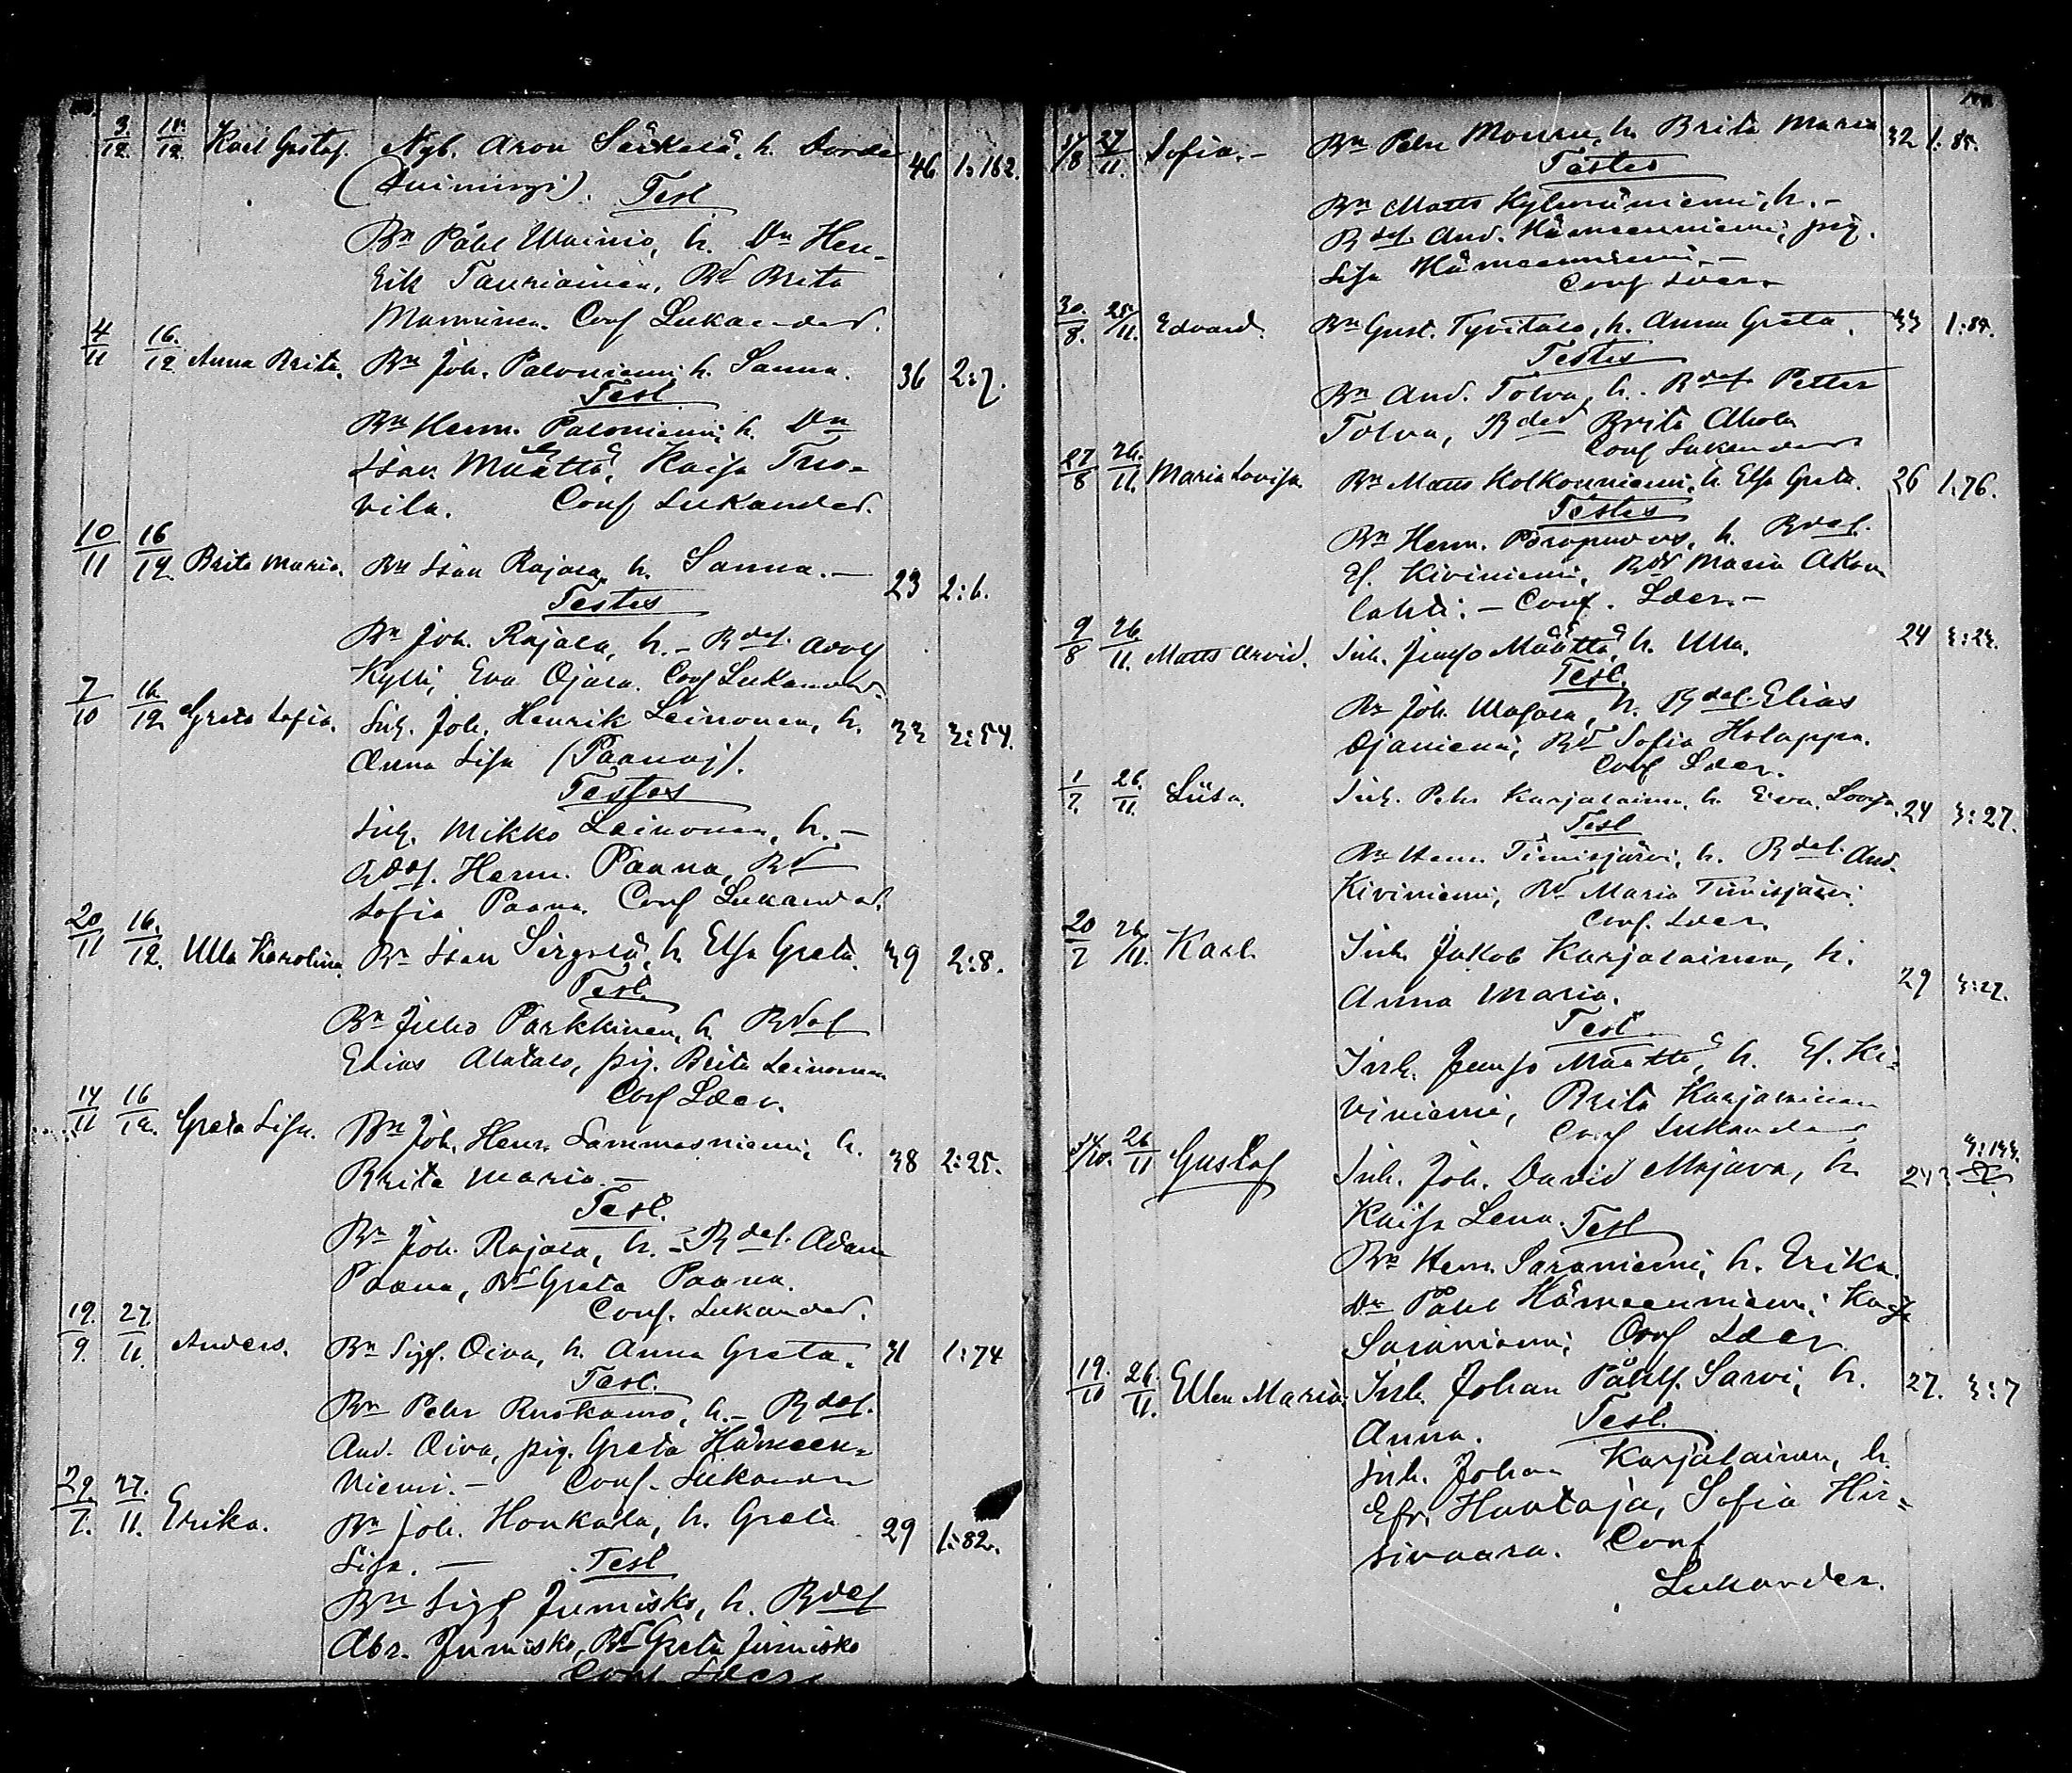 3/12 15/12 Karl Gustaf. Nyb. Aron Särkelä, h. 46 1:162.
Test
Bn Påhl Wainio, h. Dn Hen-
rik Tauriainen, Bd Brita
Manninen. Conf Lukander.
4/11 16/12 Anna Brita. Bn Joh. Paloniemi h. Sanna. 36 2:7.
Test
Bn Herm. Paloniemi, h. Dn
Isak Määttä, Kaisa Tuo-
vila. Conf Lukander.
10/11 16/12 Brita Maria. Bn Isak Rajala, h. Sanna. — 23 2:6.
Testes
Bn Joh. Rajala, h. – Rdef. Adolf
Kylli, Eva Ojala. Conf Lukander.
7/10 16/12 Greta Sofia. Inh. Joh. Henrik Leinonen, h. 33 3:54.
Anna Lisa (Paanaj).
Testes
Inh. Mikko Leinonen, h. –
Bdef. Herm. Paana, Bd
Sofia Paana. Conf Lukander.
20/11 16/12 Ulla Karolina. Bn Isak Sirpelä, h. Elsa Greta. 39 2:8.
Test.
Bn Juho Parkkinen, h. Bdef
Elias Alatalo, pig. Brita Leinonen
Conf Lder.
14/11 16/12 Greta Lisa. Bn Joh. Henr. Lammasniemi, h. 38 2:25.
Brita Maria. —
Test.
Bn Joh. Rajala, h. – Bdef. Adam
Paana, Bd Greta Paana.
Conf. Lukander.
19/9 27/11 Anders. Bn Sigf. Oiva, h. Anna Greta. 31 1:74
Test.
Bn Pehr Ruokamo, h. – Bdef.
And. Oiva, pig. Greta Hämeen-
niemi. – Conf. Lukander
29/7 27/11 Erika. Bn Joh. Honkala, h. Greta 29 1:82.
Lisa. — Test
Bn Sigf Jumisko, h. Bdef
Abr. Jumisko, Bd Greta Jumisko
Conf Lder.
27/11 Sofia. – Bn Pehr Mouru, h. Brita Maria 32 1:85.
Testes
Bn Matts Kylmäniemi, h. –
Bdef. And. Hämeenniemi, pig.
Lisa Hämeenniemi. –
Conf Lder.
30/8 25/11 Edvard. Bn Gust. Tyvitalo, h. Anna Greta. 33 1:85.
Testes
Bn And. Tolva, h. Bdef Petter
Tolva, Bd Brita Ahola
Conf Lukander
27/8 26/11 Maria Lovisa. Bn Matts Kolkonniemi, h. Elsa Greta. 26 1:76.
Testes
Bn Herm. Poropudas, h. Bdef.
Ef. Kiviniemi, Bd Maria Akan
lahti. – Conf. Lder. –
9/8 26/11 Matts Arvid. Inh. Määttä, h. Ulla. 24 3:23.
Test.
Bn Joh. h. Bdef. Elias
Ojaniemi, Bd Sofia Holappa.
Conf Lder.
1/7 26/11 Liisa. Inh. Pehr Karjalainen, h. Eva Lovisa. 24 3:27.
Test
Bn Henr. Timisjärvi, h. Bdef. And.
Kiviniemi, Bd Maria Timisjärvi.
Conf. Lder.
20/7 26/11 Karl. Inh. Jakob Karjalainen, h. 29 3:27.
Anna Maria.
Test
Inh. Määttä, h. Ef. Ki-
viniemi, Brita Karjalainen
Conf Lukander
26/11 Gustaf Inh. Joh. David Majava, h. 3:133.
Kaisa Lena. Test
Bn Herm. Saraniemi, h. Erika.
Dn Påhl Hämeenniemi, Kaisa
Saraniemi, Conf Lder.
19/10 26/11 Ellen Maria. Inh. Johan Påhlf. Sarvi, h. 27. 3:7
Anna. Test.
Inh. Johan Karjalainen, h.
Efr. Huotaja, Sofia Hir-
sivaara. Conf
Lukander.